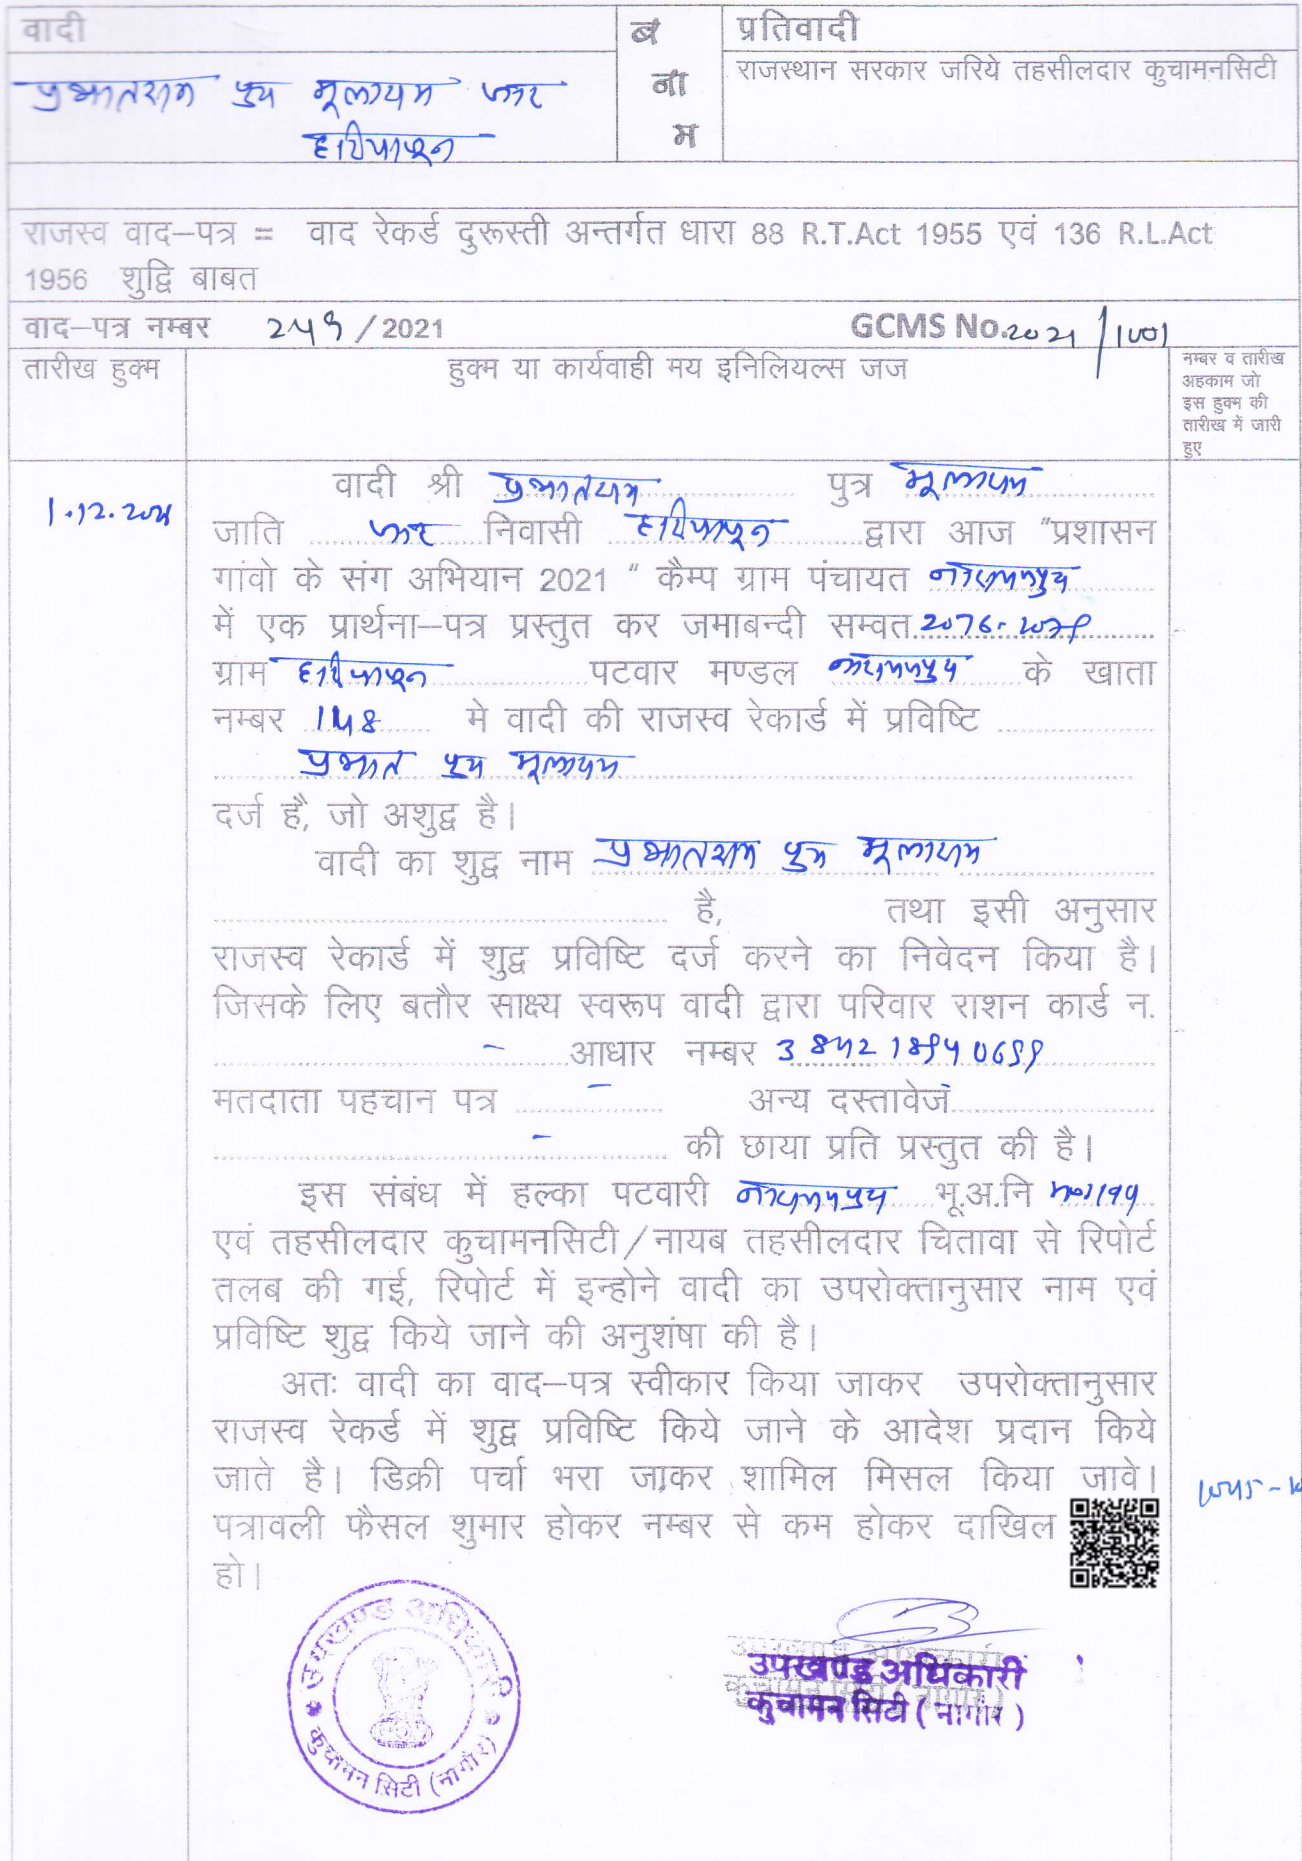 वादी
ब
ना
म
प्रतिवादी
प्रभातराम पुत्र मूलाराम जाट
राजस्थान सरकार जरिये तहसीलदार कुचामनसिटी
राजस्व वाद–पत्र = वाद रेकर्ड दुरूस्ती अन्तर्गत धारा 88 R.T.Act 1955 एवं 136 R.L.Act
1956 शुद्वि बाबत
वाद–पत्र नम्बर 249 / 2021 GCMS No. 2021 /
तारीख हुक्म
हुक्म या कार्यवाही मय इनिलियल्स जज
नम्बर व तारीख
अहकाम जो
इस हुक्म की
तारीख में जारी
हुए
1.12.2021
वादी श्री प्रभातराम पुत्र मूलाराम
जाति जाट निवासी द्वारा आज "प्रशासन
गांवो के संग अभियान 2021 " कैम्प ग्राम पंचायत नारायणपुरा
में एक प्रार्थना–पत्र प्रस्तुत कर जमाबन्दी सम्वत 2076-2079
ग्राम पटवार मण्डल नारायणपुरा के खाता
नम्बर 148 मे वादी की राजस्व रेकार्ड में प्रविष्टि
प्रभात पुत्र मूलाराम
दर्ज है, जो अशुद्व है।
वादी का शुद्व नाम प्रभातराम पुत्र मूलाराम
है, तथा इसी अनुसार
राजस्व रेकार्ड में शुद्व प्रविष्टि दर्ज करने का निवेदन किया है।
जिसके लिए बतौर साक्ष्य स्वरूप वादी द्वारा परिवार राशन कार्ड न.
- आधार नम्बर
मतदाता पहचान पत्र - अन्य दस्तावेजं
- की छाया प्रति प्रस्तुत की है।
इस संबंध में हल्का पटवारी नारायणपुरा भू.अ.नि
एवं तहसीलदार कुचामनसिटी/नायब तहसीलदार चितावा से रिपोर्ट
तलब की गई, रिपोर्ट में इन्होने वादी का उपरोक्तानुसार नाम एवं
प्रविष्टि शुद्व किये जाने की अनुशंषा की है।
अतः वादी का वाद–पत्र स्वीकार किया जाकर उपरोक्तानुसार
राजस्व रेकर्ड में शुद्व प्रविष्टि किये जाने के आदेश प्रदान किये
जाते है। डिक्री पर्चा भरा जाकर शामिल मिसल किया जावे।
पत्रावली फैसल शुमार होकर नम्बर से कम होकर दाखिल
हो।
उपखण्ड अधिकारी
कुचामन सिटी (नागौर)
उपखण्ड अधिकारी
कुचामन सिटी ( नागौर )